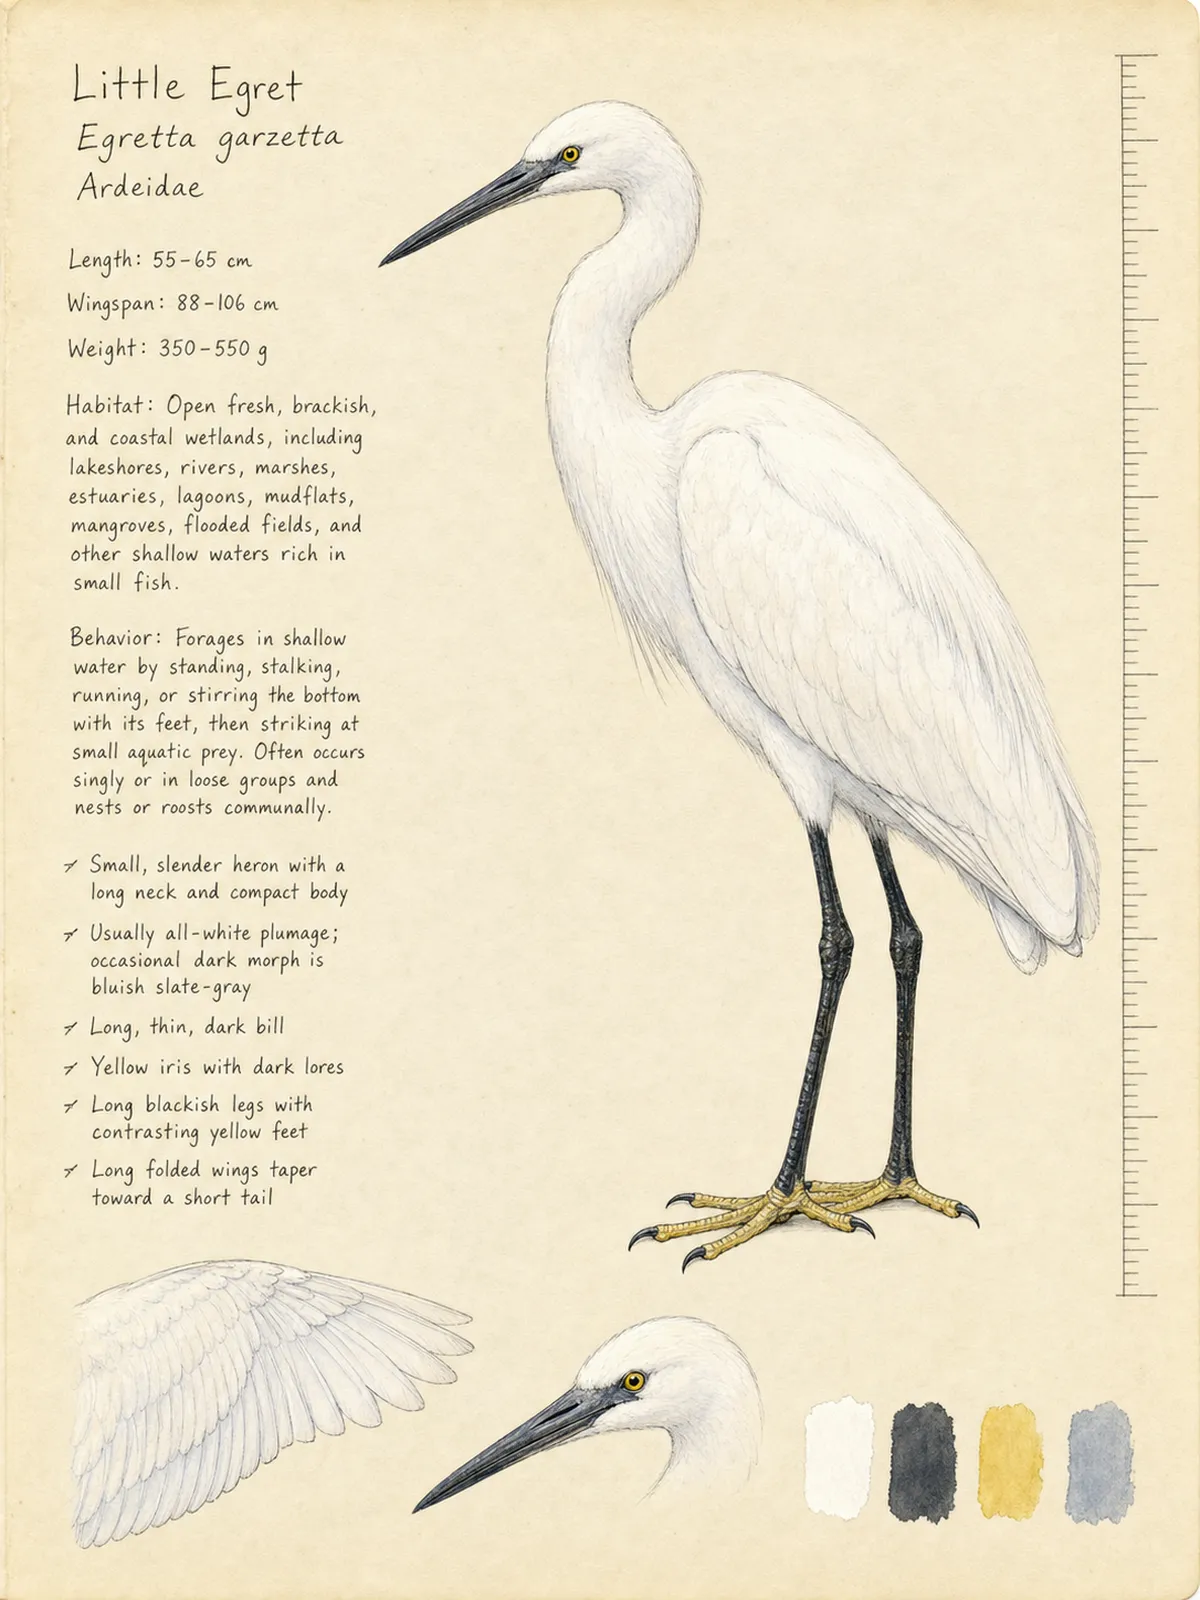 Little Egret
Egretta garzetta
Ardeidae
Length: 55-65 cm
Wingspan: 88-106 cm
Weight: 350-550 g
Habitat: Open fresh, brackish,
and coastal wetlands, including
lakeshores, rivers, marshes,
estuaries, lagoons, mudflats,
mangroves, flooded fields, and
other shallow waters rich in
small fish.
Behavior: Forages in shallow
water by standing, stalking,
running, or stirring the bottom
with its feet, then striking at
small aquatic prey. Often occurs
singly or in loose groups and
nests or roosts communally.
Small, slender heron with a
long neck and compact body
Usually all-white plumage;
occasional dark morph is
bluish slate-gray
Long, thin, dark bill
Yellow iris with dark lores
Long blackish legs with
contrasting yellow feet
Long folded wings taper
toward a short tail